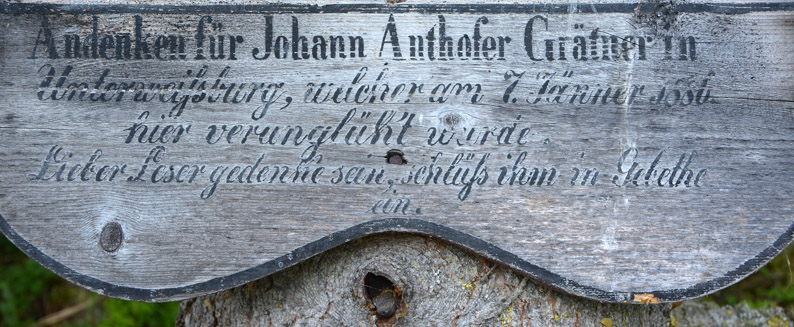 Andenken für Johann Anthofer Grätner in
Unterwaißburg, welcher am 7. Jänner 1886
hier verunglükt wurde.
Lieber Leser gedenke sein, schlüß ihm in Gebethe
ein.